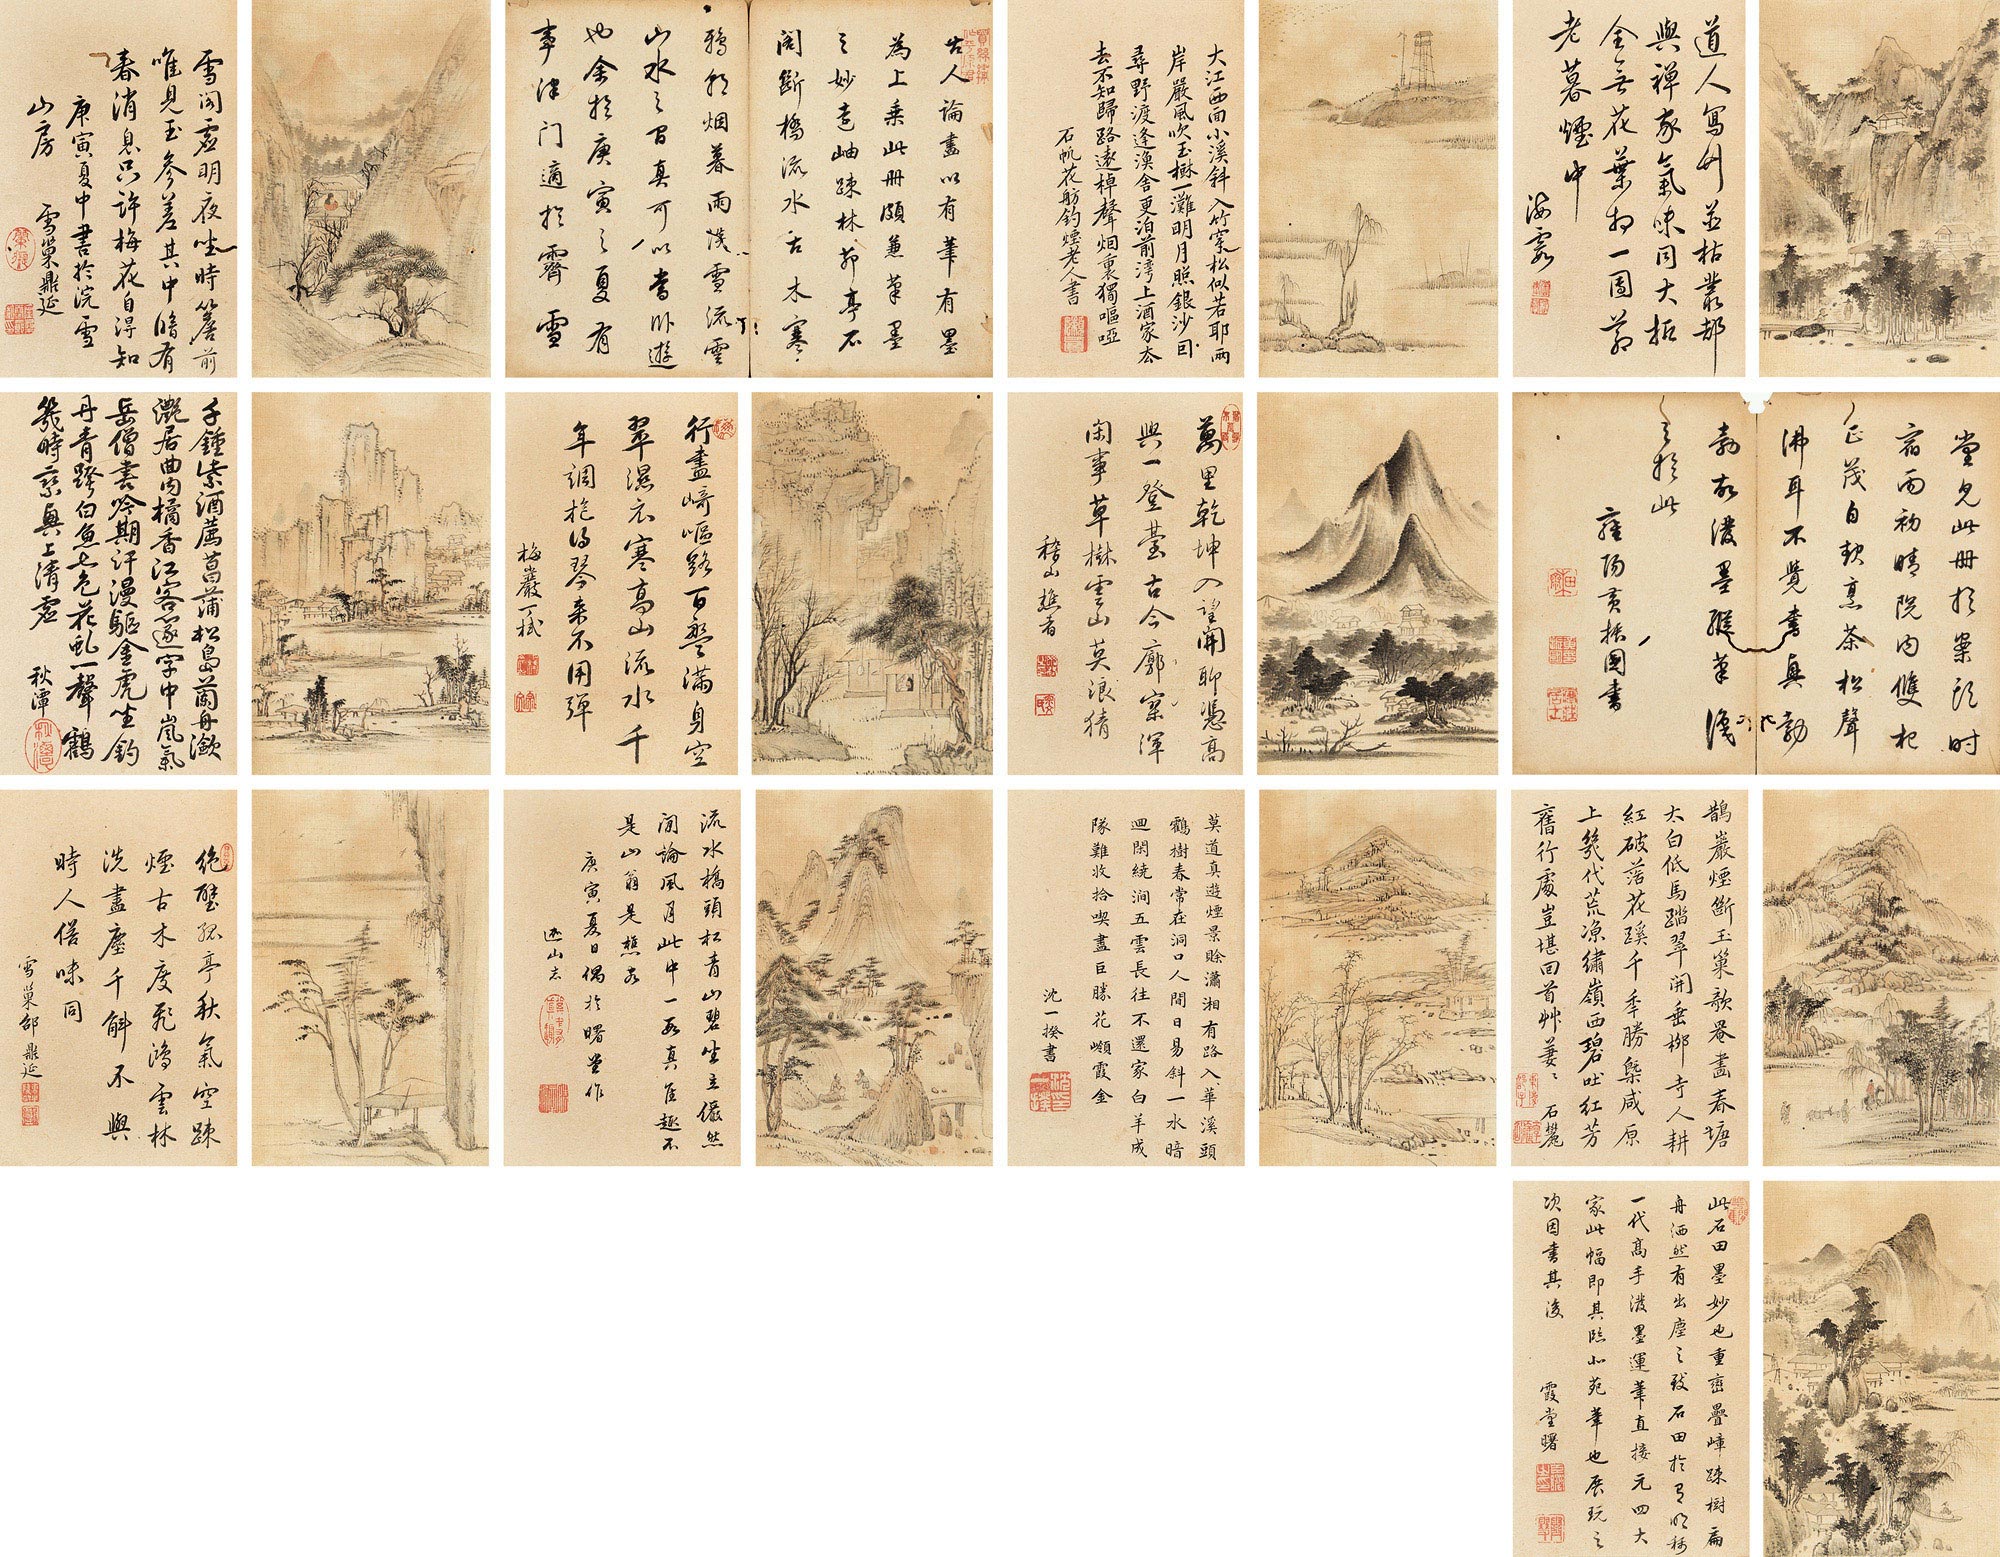 道人寫竹並枯叢却
與禪家氣味同大抵
全無花葉相一團蒼
老暮煙中
海霞
大江西面小溪斜入竹穿松似若耶兩
岸嚴風吹玉樹一灘明月照銀沙因
尋野渡逢漁舍更泊前灣上酒家去
去不知歸路遠棹聲烟裏獨嘔啞
石帆花舫釣煙老人書
古人論畫以有筆有墨
為上乘此冊頗兼筆墨
之妙遠岫疎林茆亭石
閣斷橋流水古木寒
鴉朝烟暮雨洪雪流雲
山水之間真可以當卧遊
也余於庚寅之夏有
事津门適於霽雪
雪閣虛明夜坐時簷前
唯見玉參差其中暗有
春消息只許梅花自得知
庚寅夏中書於浣雪
山房
雪巢鼎延
堂見此冊於案頭时
宿雨初晴院内雙杞
正茂自耿烹茶松聲
沸耳不覺書興勃
勃故潑墨縱筆識
之於此
雍陽黃振國書
萬里乾坤入望開聊憑高
興一登臺古今廓寀渾
閑事草樹雲山莫浪猜
稽山樵者
行盡崎嶇路百盤滿身空
翠濕衣寒高山流水千
年調抱得琴來不用彈
梅巖一棫
千鍾紫酒薦菖蒲松島蘭舟瀲
灔居曲内橘香江客遂字中嵐氣
岳僧書吟期汗漫驅金虎坐釣
丹青跨白魚七色花虬一聲鶴
幾時乘興上清虛
秋潭
鵲巖煙斷玉巢歌罨畫春塘
太白低馬踏翠開垂柳寺人耕
紅破落花蹊千季勝槩咸原
上幾代荒凉繡嶺西碧吐紅芳
舊行處豈堪回首艸萋萋
石麓
莫道真遊煙景賒瀟湘有路入華溪頭
鶴樹春常在洞口人間日易斜一水暗
迴閑繞澗五雲長往不還家白羊成
隊難收拾喫盡巨勝花嚬霞金
沈一揆書
流水橋頭松青山碧坐立儼然
閒論風月此中一段真隹趣不
是山翁是樵客
庚寅夏日偶於曙堂作
絶壁孤亭秋氣空疎
煙古木度飛鴻雲林
洗盡塵千斛不與
時人俗味同
雪巢郜鼎延
此石田墨妙也重巒疊嶂疎樹扁
舟洒然有出塵之致石田於有明稱
一代高手潑墨運筆直接元四大
家此幅即其臨北苑筆也展玩之
次因書其後
霞堂曙